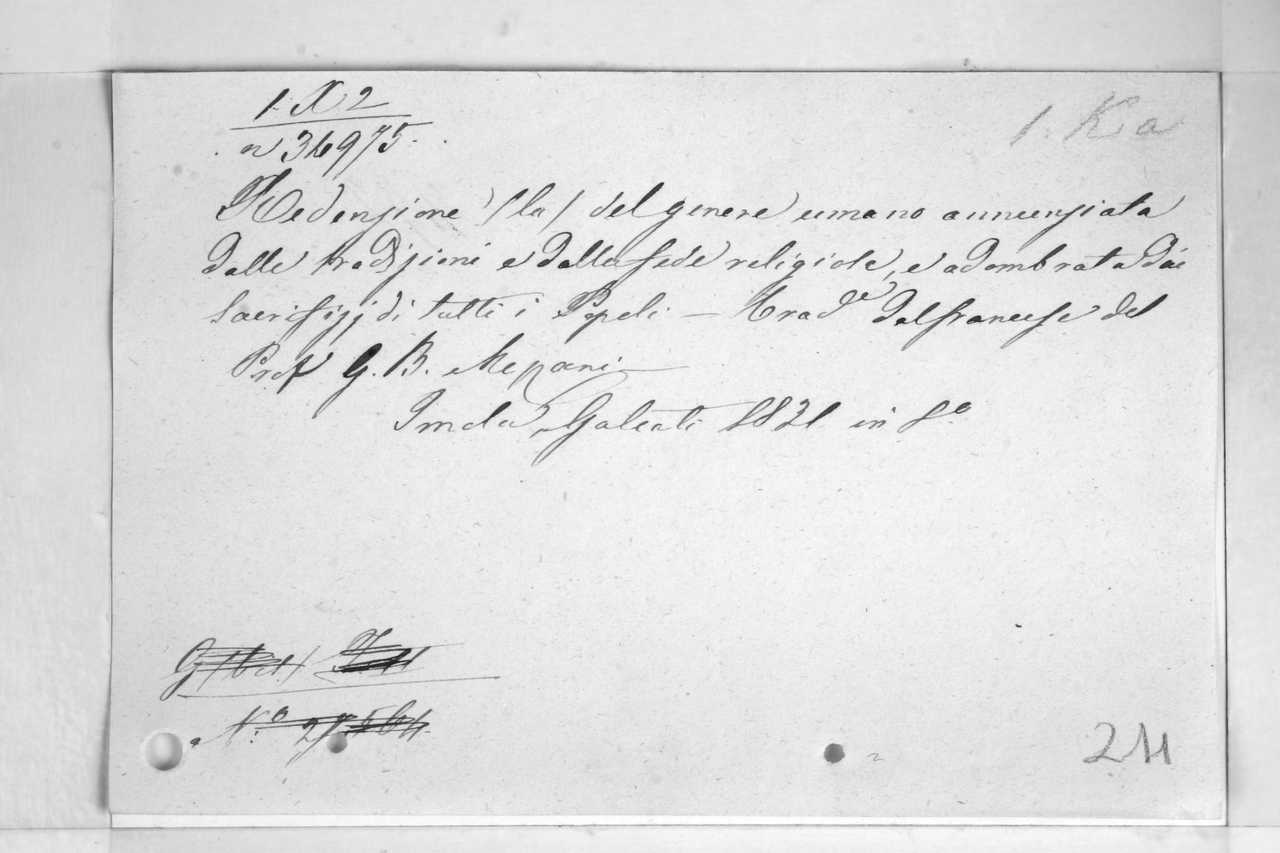 1. X 2
1. K a
n 36975.
Redenzione (la) del genere umano annunziata
dalle tradizioni e dalla fede religiose, e adombrata dai
sacrifizj di tutti i Popoli – trad.e dal francese del
Prof G. B.
Imola, Galeati 1831 in 8.o
N.o 27564
211